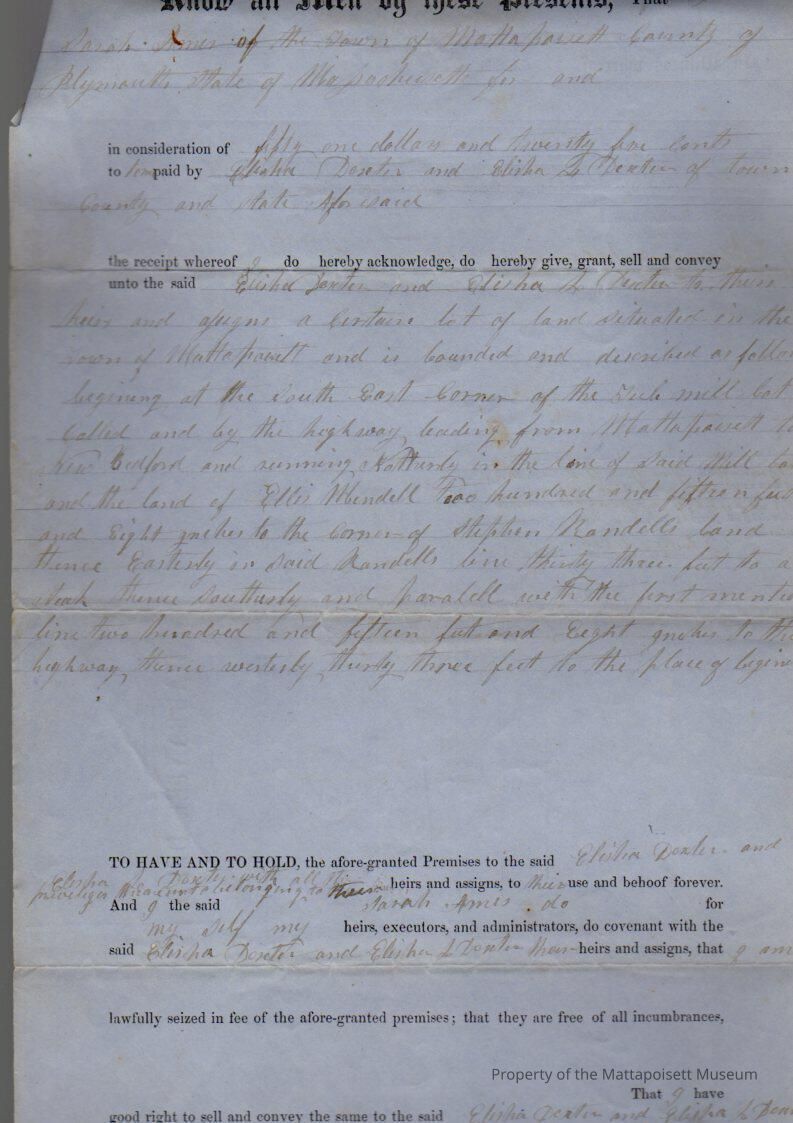 Know all Men by these Presents, That
Sarah Ames of the Town of Mattapoisett County of
Plymouth State of Massachusetts for and
in consideration of fifty one dollars and twenty five cents
to paid by Elisha Dexter and Elisha L Dexter of town
County and State Aforesaid
the receipt whereof I do hereby acknowledge, do hereby give, grant, sell and convey
unto the said Elisha Dexter and Elisha L Dexter to their
heirs and assigns a Certain lot of land situated in the
town of Mattapoisett and is bounded and described as follow
begining at the South East Corner of the mill lot
Called and by the highway leading from Mattapoisett to
New Bedford and running Notherly in the line of Said Mill lot
and the land of Ellis Mendell Two hundred and fifteen feet
and Eight inches to the Corner of Stephen Randells land
thence Easterly in Said Randells line thirty three feet to a
steak thence Southerly and paralell with the first mentio
line two hundred and fifteen feet and Eight inches to the
highway thence westerly thirty three feet to the place of begin
TO HAVE AND TO HOLD, the afore-granted Premises to the said Elisha Dexter and
Elisha L Dexter with all the
privileges belonging to their heirs and assigns, to their use and behoof forever.
And I the said Sarah Ames do for
my self my heirs, executors, and administrators, do covenant with the
said Elisha Dexter and Elisha L Dexter their heirs and assigns, that I am
lawfully seized in fee of the afore-granted premises; that they are free of all incumbrances,
Property of the Mattapoisett Museum
That I have
good right to sell and convey the same to the said Elisha Dexter and Elisha L Dex